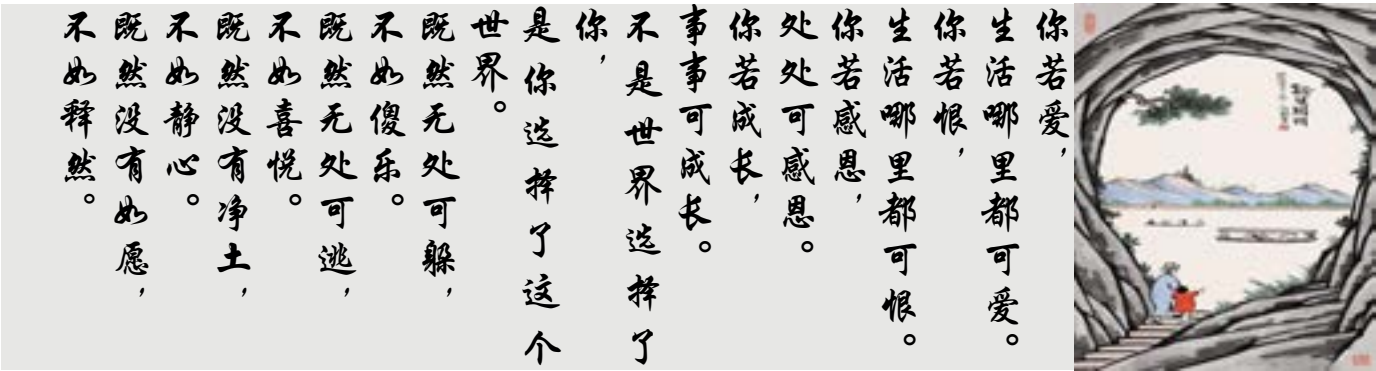 你若爱，
生活哪里都可爱。
你若恨，
生活哪里都可恨。
你若感恩，
处处可感恩。
你若成长，
事事可成长。
不是世界选择了
你，
是你选择了这个
世界。
既然无处可躲，
不如傻乐。
既然无处可逃，
不如喜悦。
既然没有净土，
不如静心。
既然没有如愿，
不如释然。